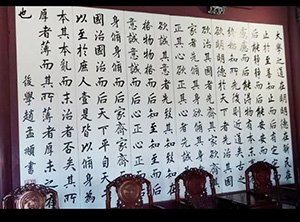 大學之道在明明德在新民在
止於至善知止而后有定定而
后能靜靜而后能安安而后能
慮慮而后能得物有本末事有
終始知所先後則近道矣古之
欲明明德於天下者先治其國
欲治其國者先齊其家欲齊其
家者先脩其身欲脩其身者先
正其心欲正其心者先誠其意
欲誠其意者先致其知致知在
格物物格而后知至知至而后
意誠意誠而后心正心正而后
身脩身脩而后家齊家齊而后
國治國治而后天下平自天子
以至於庶人壹是皆以脩身為
本其本亂而末治者否矣其所
厚者薄而其所薄者厚未之有
也
後學趙孟頫書